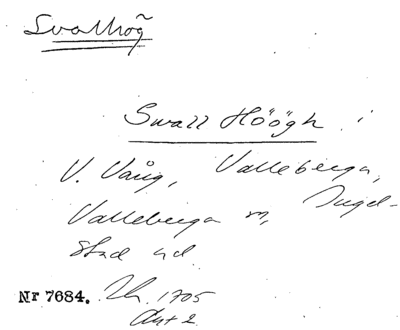 Svallhög
Swall Höögh i
V. Vång, Valleberga,
Valleberga sn, Ingel-
stad hd
Nr 7684. Lh. 1705
Akt 2